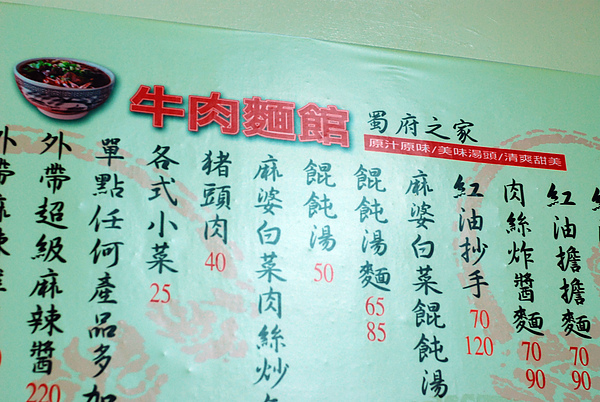 牛肉麵館
蜀府之家
原汁原味/美味湯頭/清爽甜美
紅油擔擔麵
70
90
肉絲炸醬麵
70
90
紅油抄手
70
120
麻婆白菜餛飩湯
餛飩湯麵
65
85
餛飩湯
50
麻婆白菜肉絲炒
豬頭肉
40
各式小菜
25
單點任何產品多加
外帶超級麻辣醬
220
外帶麻辣